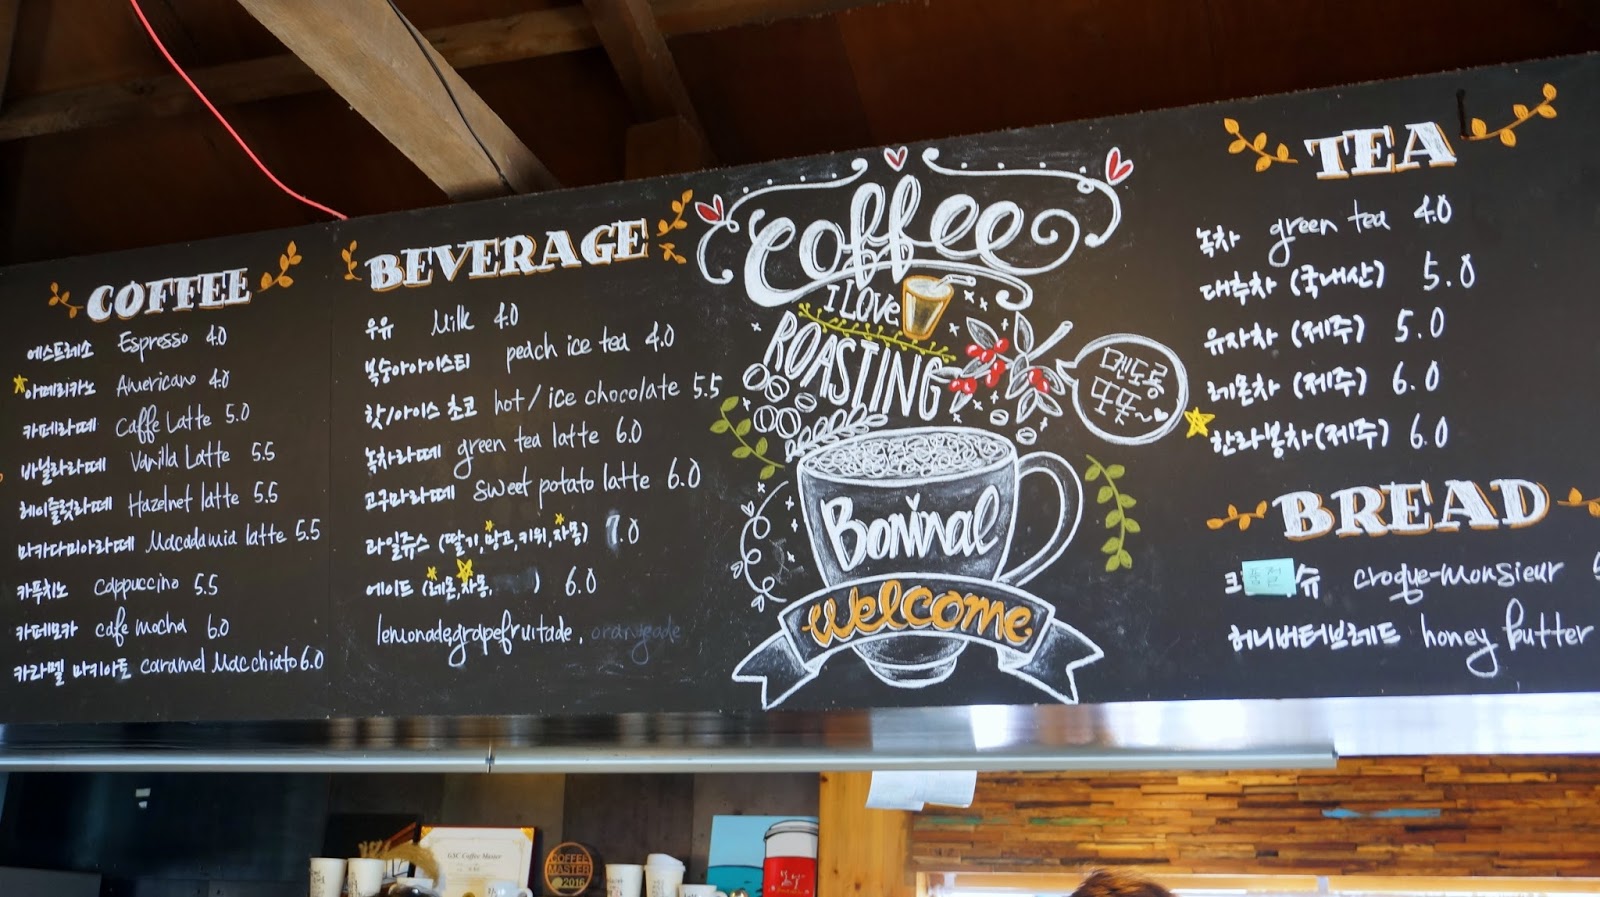 COFFEE
에스프레소 Espresso 4.0
아메리카노 Americano 4.0
카페라떼 Caffe Latte 5.0
바닐라라떼 Vanilla Latte 5.5
헤이즐넛라떼 Hazelnet latte 5.5
마카다미아라떼 Macadamia latte 5.5
카푸치노 cappuccino 5.5
카페모카 cafe mocha 6.0
카라멜 마키아토 caramel Macchiato 6.0
BEVERAGE
우유 Milk 4.0
복숭아아이스티 peach ice tea 4.0
핫/아이스 초코 hot/ice chocolate 5.5
녹차라떼 green tea latte 6.0
고구마라떼 sweet potato latte 6.0
과일쥬스 (딸기,망고,키위,자몽) 7.0
에이드 (레몬,자몽, ) 6.0
lemonade&grapefruitade, orangeade
Coffee
I LOVE
ROASTING
멘도롱
또똣~
Boninal
Welcome
TEA
녹차 green tea 4.0
대추차 (국내산) 5.0
유자차 (제주) 5.0
레몬차 (제주) 6.0
한라봉차(제주) 6.0
BREAD
크 품절 슈 croque-monsieur
허니버터브레드 honey butter
GSC Coffee Master
COFFEE
MASTER
2016